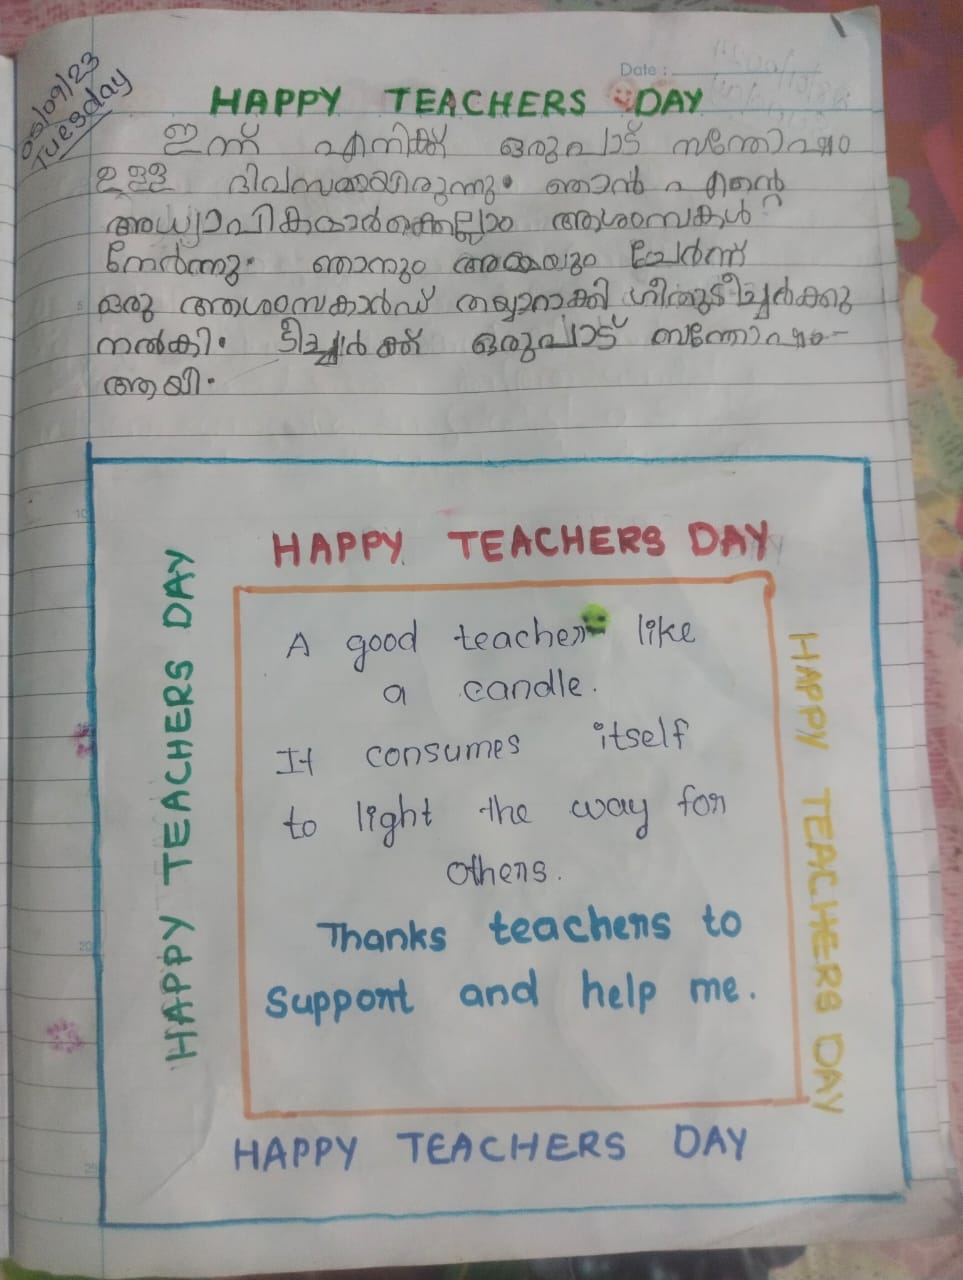 05/09/23
Tuesday
Date :
HAPPY TEACHERS DAY
ഇന്ന് എനിക്ക് ഒരുപാട് സന്തോഷം
ഉള്ള ദിവസമായിരുന്നു. ഞാൻ എന്റെ
അധ്യാപികമാർക്കെല്ലാം ആശംസകൾ
നേർന്നു. ഞാനും അമ്മയും ചേർന്ന്
ഒരു ആശംസകാർഡ് തയ്യാറാക്കി ഗീതുടീച്ചർക്കു
നൽകി. ടീച്ചർക്ക് ഒരുപാട് സന്തോഷം-
ആയി.
HAPPY TEACHERS DAY
HAPPY TEACHERS DAY
A good teacher like
a candle.
It consumes itself
to light the way for
others.
Thanks teachers to
support and help me.
HAPPY TEACHERS DAY
HAPPY TEACHERS DAY